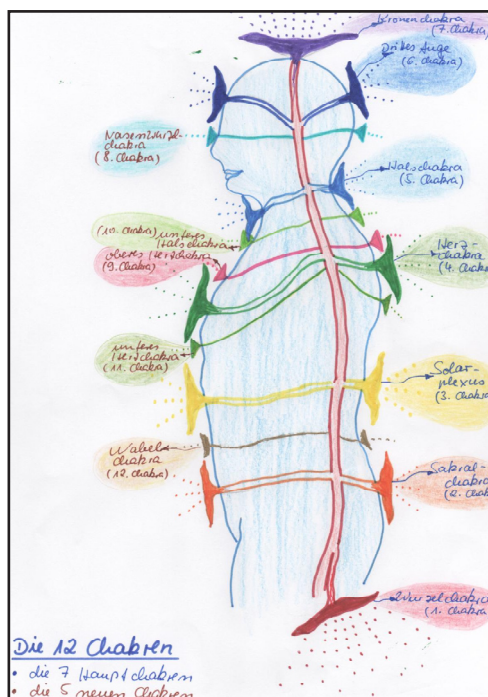 Kronenchakra
(7. Chakra)
Drittes Auge
(6. Chakra)
Nasenwurzel-
chakra
(8. Chakra)
Halschakra
(5. Chakra)
(10. Chakra) unteres
Halschakra
oberes Herzchakra
(9. Chakra)
Herz-
chakra
(4. Chakra
unteres
Herzchakra
(11. Chakra)
Solar-
plexus
(3. Chakra
Nabel-
chakra
(12. Chakra)
Sakral-
chakra
(2. Chak
Wurzelchakra
(1. Chakra
Die 12 Chakren
• die 7 Hauptchakren
• die 5 neuen Chakren